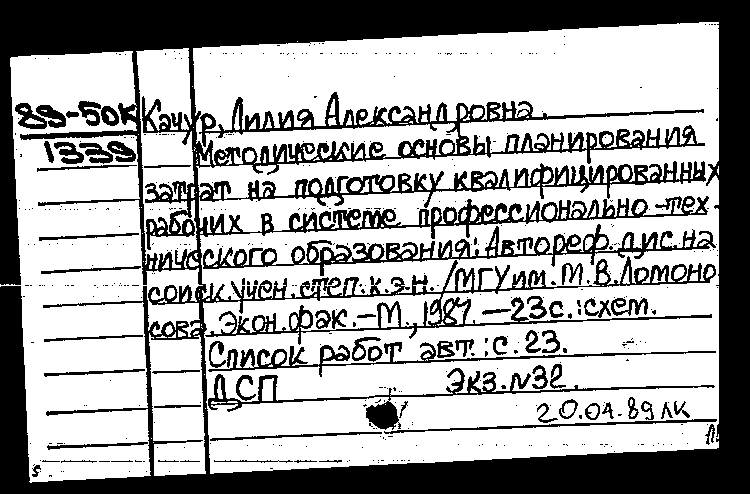 89-50К Качур, Лилия Александровна.
1339 Методические основы планирования
затрат на подготовку квалифицированных
рабочих в системе профессионально-тех-
нического образования: Автореф. дис. на
соиск. учен. степ. к.э.н. /МГУ им. М.В. Ломоно
сова. Экон. фак. – М., 1987. – 23 с.: схем.
Список работ авт.: с. 23.
ДСП Экз. N32.
20.04.89 ЛК